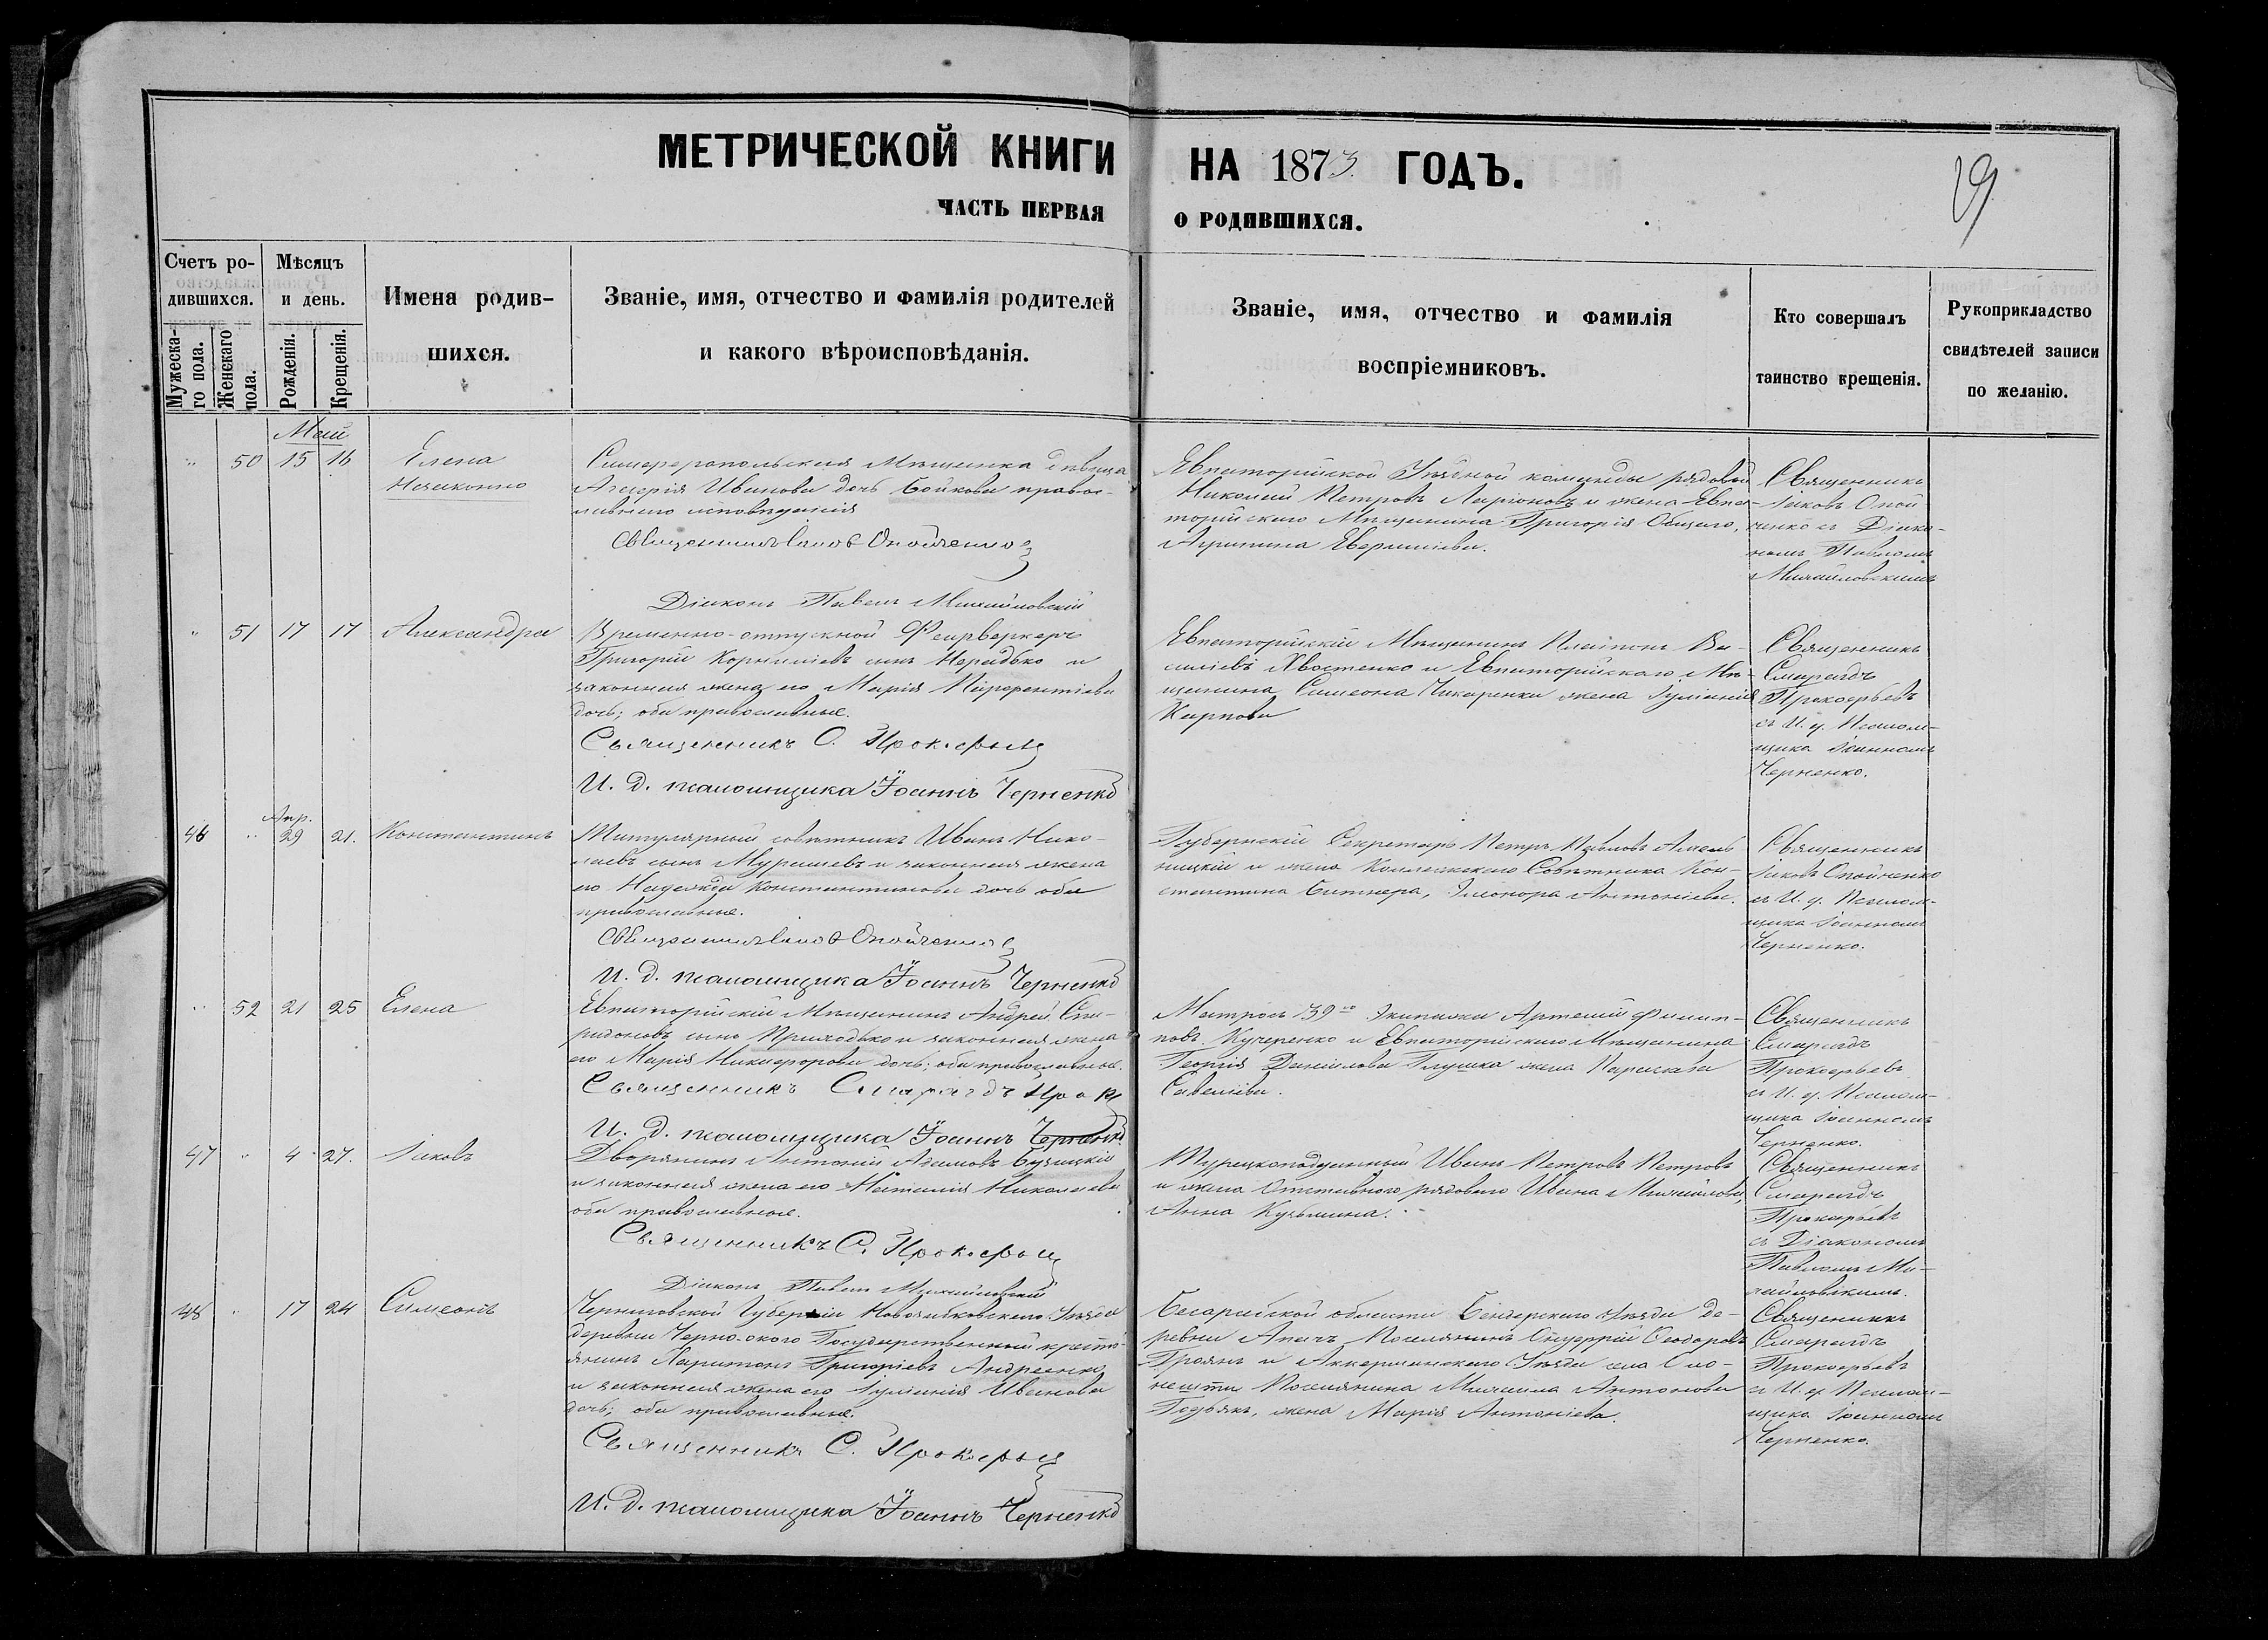 МЕТРИЧЕСКОЙ КНИГИ НА 1873 ГОДЪ.
ЧАСТЬ ПЕРВАЯ О РОДИВШИХСЯ.
19
Счетъ ро-
дившихся.
Мужеска-
го пола.
Женскаго
пола.
Мѣсяцъ
и день.
Рожденія.
Крещенія.
Имена родив-
шихся.
Званіе, имя, отчество и фамилія родителей
и какого вѣроисповѣданія.
Званіе, имя, отчество и фамилія
воспріемниковъ.
Кто совершалъ
таинство крещенія.
Рукоприкладство
свидѣтелей записи
по желанію.
Май
50 15 16
Елена
Незаконно
Симферопольская Мѣщанка дѣвица
Ивинова дочь Бойкова правос-
лавнаго исповѣданія
Священникъ Іаковъ Опойченко
Діаконъ Павелъ Михайловскій
Евпаторійской Уѣздной команды рядовой
Николай Петровъ Ларіоновъ и жена Евпа-
торійскаго Мѣщанина Григорія Общаго,
Агрипина
Священникъ
Іаковъ Опой
ченко съ Діако-
номъ Павломъ
Михайловскимъ
51 17 17
Александра
Временно-отпускной Фейрверкеръ
Григорій Корниліевъ сынъ Нерадько и
законная жена его Марія
дочь; оба православные.
Священникъ С. Прокофьевъ
И. д. псаломщика Іоаннъ Черненко
Евпаторійскій Мѣщанинъ Платонъ Ва-
силіевъ Хвостенко и Евпаторійскаго Мѣ-
щанина Симеона Чикаренки жена Іуліанія
Карпова
Священникъ
Смарагдъ
Прокофьевъ
съ И. д. Псалом-
щика Іоанномъ
Черненко.
46 Апр. 29 21.
Константинъ
Титулярный совѣтникъ Иванъ Нико-
лаевъ сынъ Мурашевъ и законная жена
его Надежда Константинова дочь оба
православные.
Священникъ Іаковъ Опойченко
И. д. псаломщика Іоаннъ Черненко
Губернскій Секретарь Петръ Павловъ
ницкій и жена Коллежскаго Совѣтника Кон-
стантина Битнера, Элеонора Антоніева.
Священникъ
Іаковъ Опойченко
съ И. д. Псалом-
щика Іоанномъ
Черненко.
52 21 25
Елена
Евпаторійскій Мѣщанинъ Андрей Спи-
ридоновъ сынъ Приходько и законная жена
его Марія Никифорова дочь; оба православные.
Священникъ Смарагдъ Прок
И. д. псаломщика Іоаннъ Черненко
Матросъ 39го Экипажа Артемій Филип-
повъ Кучеренко и Евпаторійскаго Мѣщанина
Георгія Данилова Глушка жена Параскева
Савеліева.
Священникъ
Смарагдъ
Прокофьевъ
съ И. д. Псалом-
щика Іоанномъ
Черненко.
47 4 27.
Іаковъ
Дворянинъ Антоній
и законная жена его Наталія Николаева
оба православные.
Священникъ С. Прокофьев
Діаконъ Павелъ Михайловскій
Турецкоподданный Иванъ Петровъ Петровъ
и жена Отставнаго рядоваго Ивана Михайлова,
Анна Кузьмина.
Священникъ
Смарагдъ
Прокофьевъ
съ Діакономъ
Павломъ Ми-
хайловскимъ.
48 17 24
Симеонъ
Черниговской Губерніи Новозыбковскаго Уѣзда
деревни Государственный кресть-
янинъ Харитонъ Григоріевъ Андреенко
и законная жена его Іуліанія Иванова
дочь; оба православные.
Священникъ С. Прокофьев
И. д. псаломщика Іоаннъ Черненко
Бесарабской области Бендерскаго Уѣзда де-
ревни Поселянинъ Ѳеодоровъ
Троянъ и Аккерманскаго Уѣзда села
Поселянина Михаила Антонова
жена Марія Антоніева.
Священникъ
Смарагдъ
Прокофьевъ
съ И. д. Псалом-
щика Іоанномъ
Черненко.